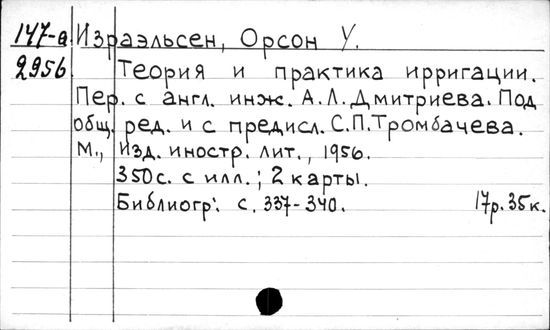 147-а Израэльсен, Орсон У.
2956 Теория и практика ирригации.
Пер. с англ. инж. А.Л.Дмитриева. Под
общ. ред. и с предисл. С.П.Тромбачева.
М., Изд. иностр. лит., 1956.
350с. с илл.; 2 карты.
Библиогр: с. 337-340. 17р.35к.